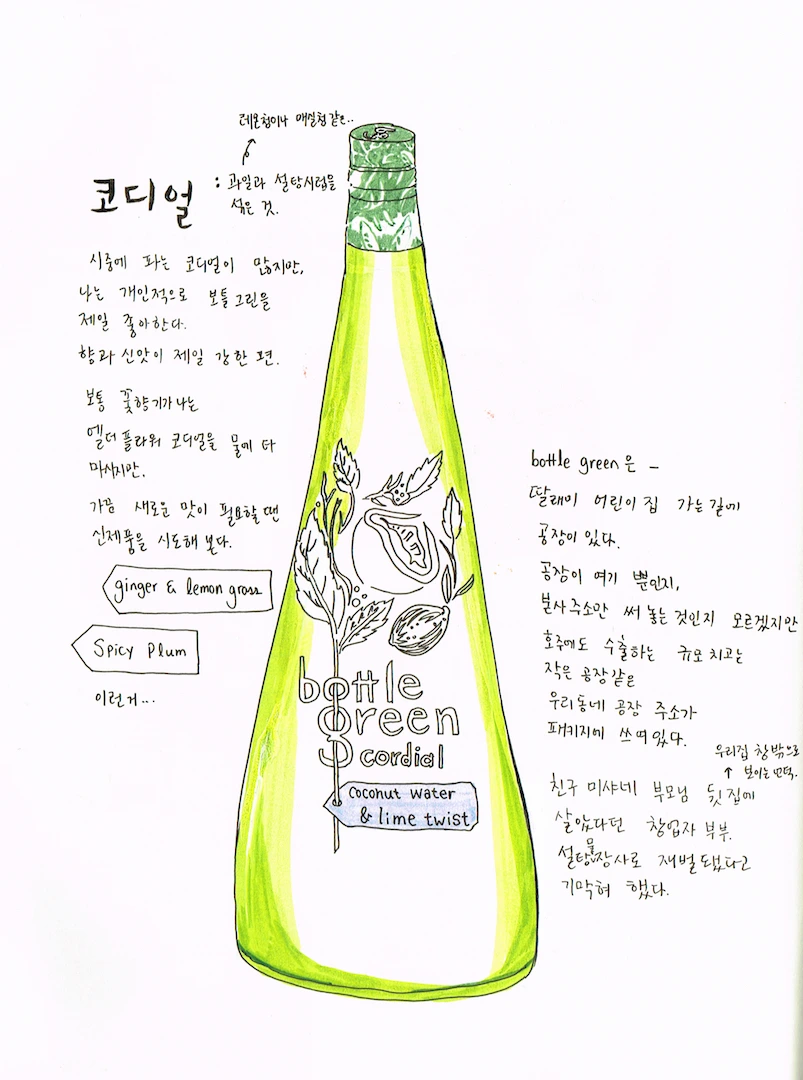 레몬청이나 매실청 같은..
코디얼 : 과일과 설탕시럽을
섞은 것.
시중에 파는 코디얼이 많지만,
나는 개인적으로 보틀그린을
제일 좋아한다.
향과 신맛이 제일 강한 편.
보통 꽃향기가 나는
엘더플라워 코디얼을 물에 타
마시지만.
가끔 새로운 맛이 필요할 땐
신제품을 시도해 본다.
ginger & lemon grass
Spicy Plum
이런거...
bottle
green
cordial
coconut water
& lime twist
bottle green은 –
딸래미 어린이집 가는 길에
공장이 있다.
공장이 여기 뿐인지,
본사 주소만 써 놓는 것인지 모르겠지만
호주에도 수출하는 규모 치고는
작은 공장 같은
우리동네 공장 주소가
패키지에 쓰여있다.
우리집 창밖으로
보이는 언덕.
친구 미샤네 부모님 뒷집에
살았다던 창업자 부부.
설탕물장사로 재벌 됐다고
기막혀 했다.